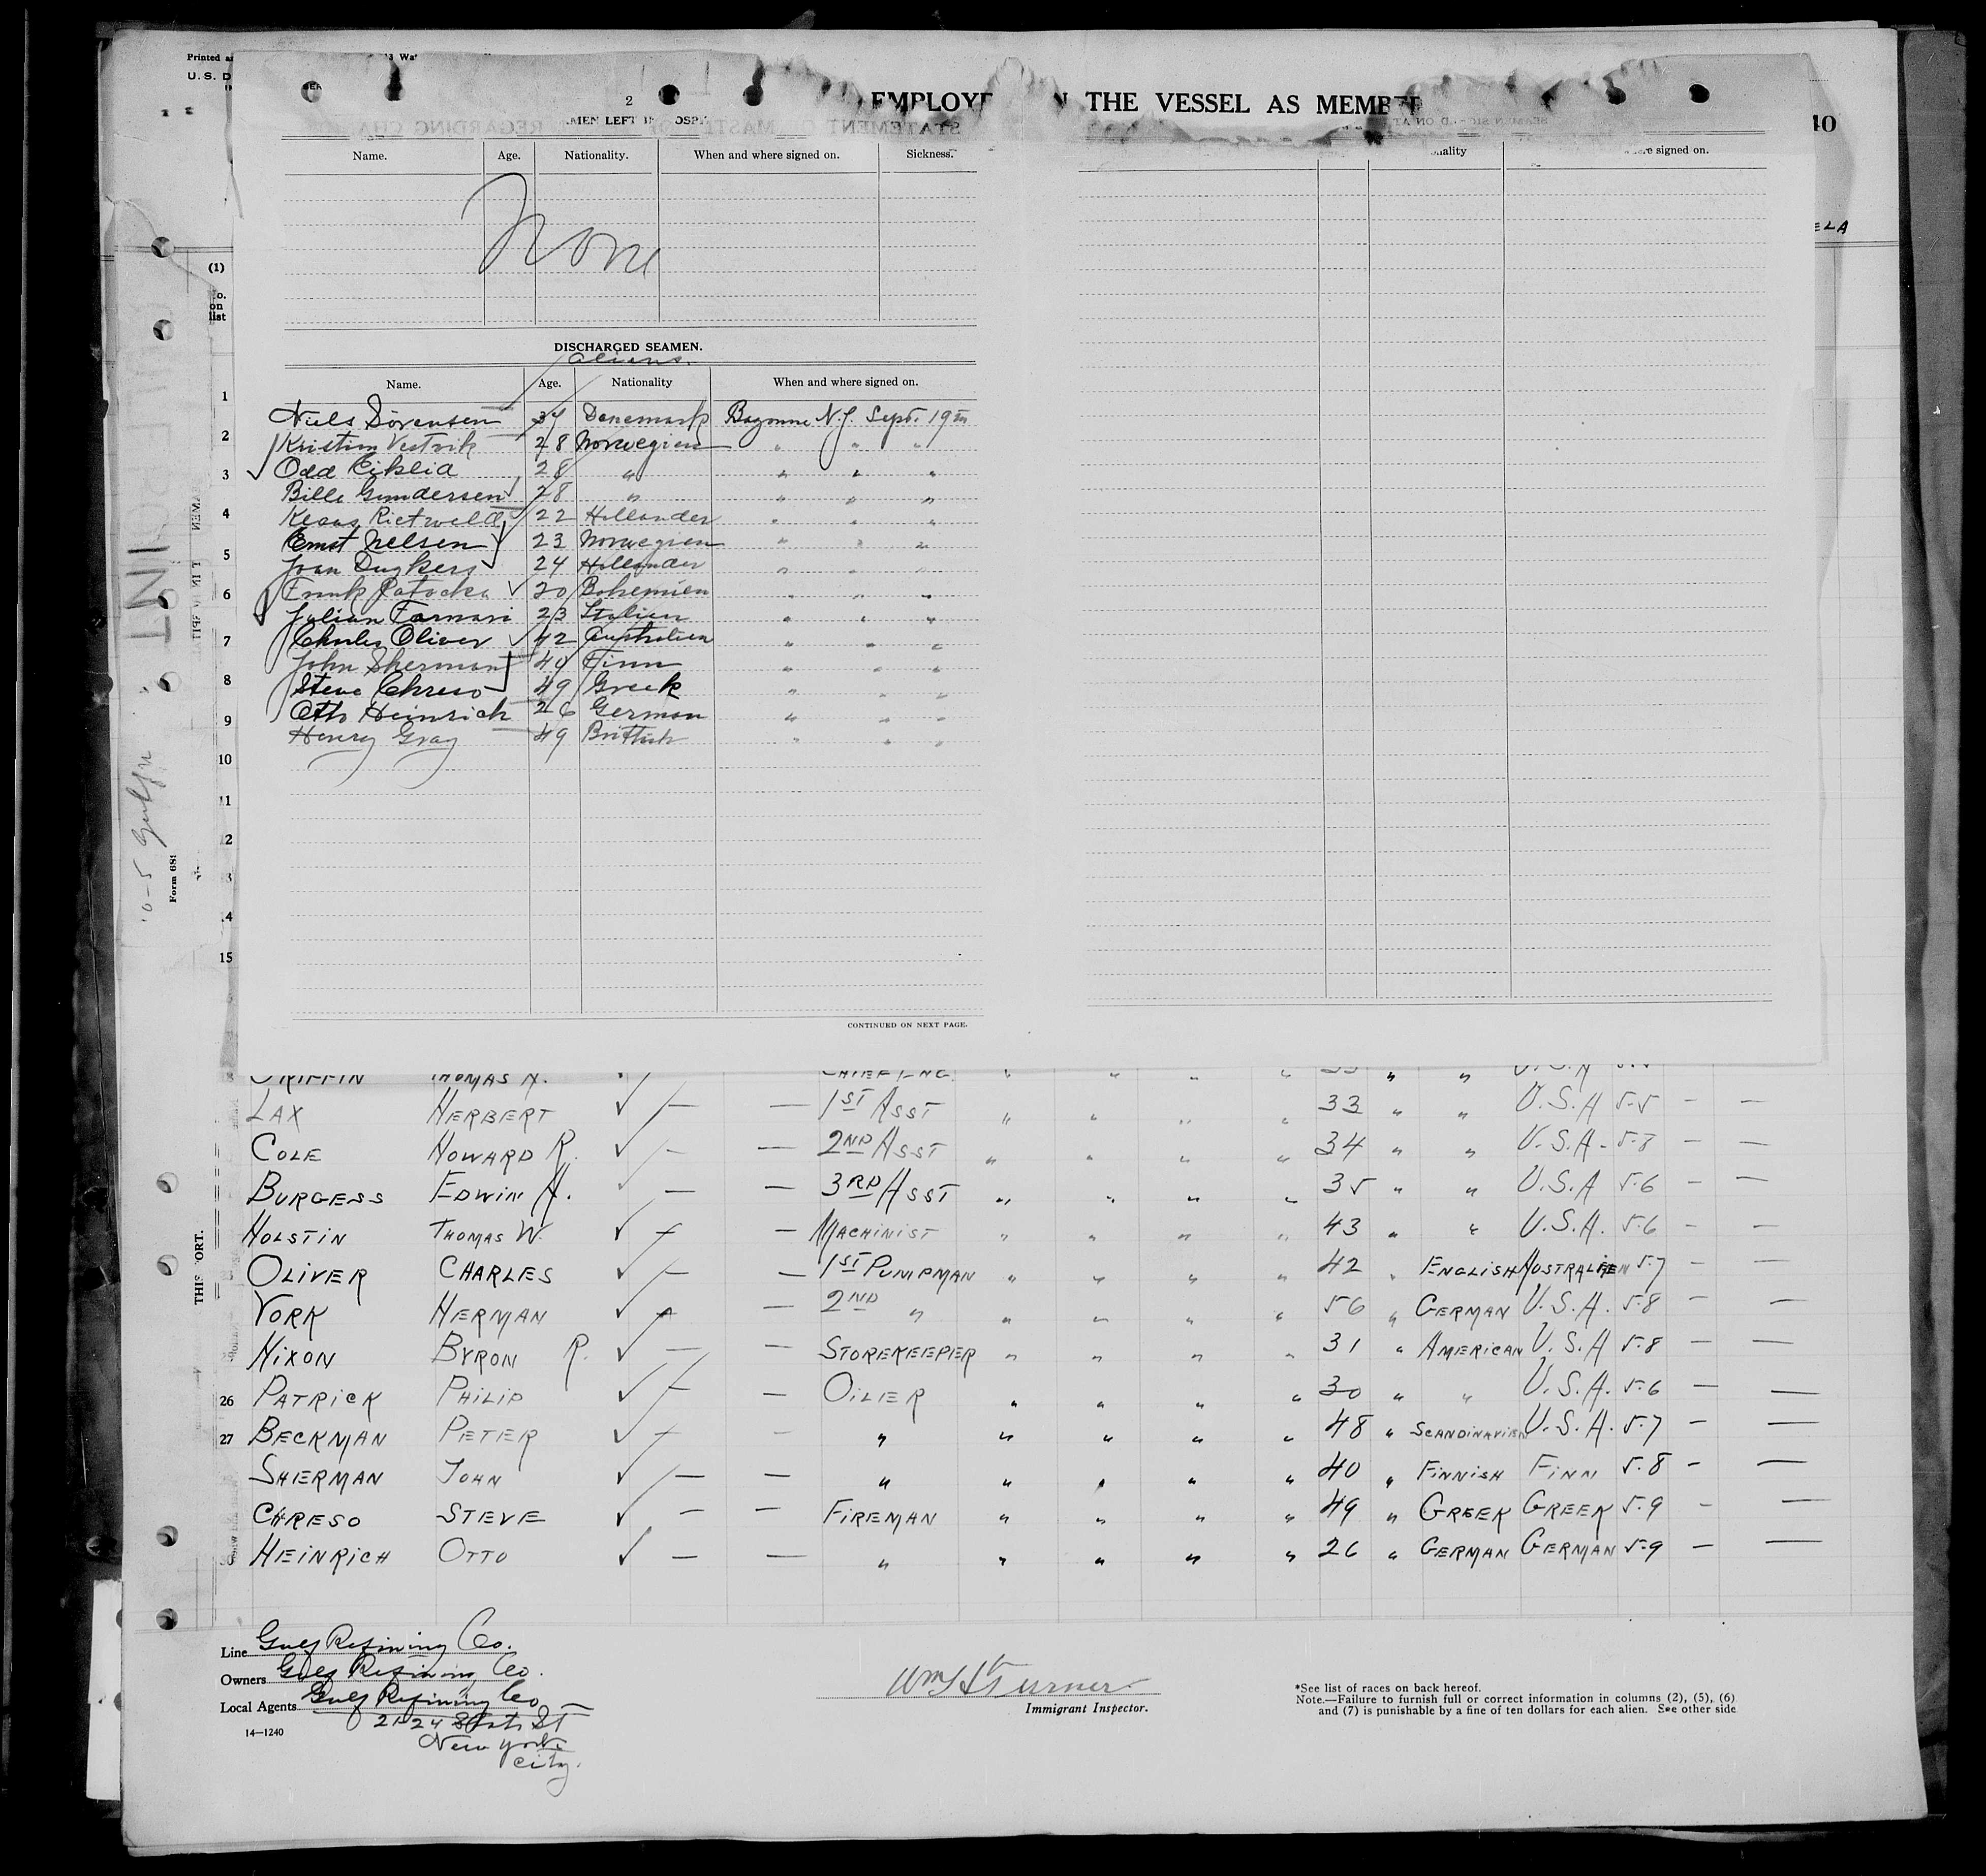 Printed
U. S. D
2
EMPLOYE THE VESSEL AS MEMBE
40
MEN LEFT IN OSP
STATEMENT OF MASTER REGARDING CHA
Name. Age. Nationality. When and where signed on. Sickness.
nality re signed on.
None
ELA
(1)
o. on list
DISCHARGED SEAMEN.
aliens.
Name. Age. Nationality When and where signed on.
1
Niels Sörensen 34 Danemark Bayonne N.J. Sept. 19th
2
Kristian Vestvik 28 Norwegien " " "
3
Odd Eiklid 28 " " " "
Bille Gundersen 28 " " " "
4
Klaas Rietweld 22 Hollander " " "
Ernst Nelsen 23 Norwegien " " "
5
Joan Duykers 24 Hollander " " "
6
Frank Patocka 20 Bohemien " " "
Julian Farnari 23 Italien " " "
7
Charles Oliver 42 Australien " " "
John Sherman 40 Finn " " "
8
Steve Chreso 49 Greek " " "
9
Otto Heinrich 26 German " " "
Henry Gray 49 Brittish " " "
10
11
12
13
14
15
CONTINUED ON NEXT PAGE.
Form 689
THIS PORT.
GRIFFIN THOMAS A. CHIEF ENG. " " " " 33 " " U.S.A
LAX HERBERT ✓ — — 1ST ASST " " " " 33 " " U.S.A 5-5 — —
COLE HOWARD R. ✓ — — 2ND ASST " " " " 34 " " U.S.A. 5-8 — —
BURGESS EDWIN A. ✓ — — 3RD ASST " " " " 35 " " U.S.A 5-6 — —
HOLSTIN THOMAS W. ✓ — — MACHINIST " " " " 43 " " U.S.A. 5-6 — —
OLIVER CHARLES ✓ — — 1ST PUMPMAN " " " " 42 " ENGLISH AUSTRALIEN 5-7 — —
YORK HERMAN ✓ — — 2ND " " " " " 56 " GERMAN U.S.A. 5-8 — —
NIXON BYRON R. ✓ — — STOREKEEPER " " " " 31 " AMERICAN U.S.A 5-8 — —
26 PATRICK PHILIP ✓ — — OILER " " " " 30 " " U.S.A. 5-6 — —
27 BECKMAN PETER ✓ — — " " " " " 48 " SCANDINAVIEN U.S.A. 5-7 — —
SHERMAN JOHN ✓ — — " " " " " 40 " FINNISH FINN 5-8 — —
CHRESO STEVE ✓ — — FIREMAN " " " " 49 " GREEK GREEK 5-9 — —
HEINRICH OTTO ✓ — — " " " " " 26 " GERMAN GERMAN 5-9 — —
Line Gulf Refining Co.
Owners Gulf Refining Co.
Local Agents Gulf Refining Co
21-24 State St
New York
City.
14—1240
Wm H Turner
Immigrant Inspector.
*See list of races on back hereof.
Note.—Failure to furnish full or correct information in columns (2), (5), (6)
and (7) is punishable by a fine of ten dollars for each alien. See other side